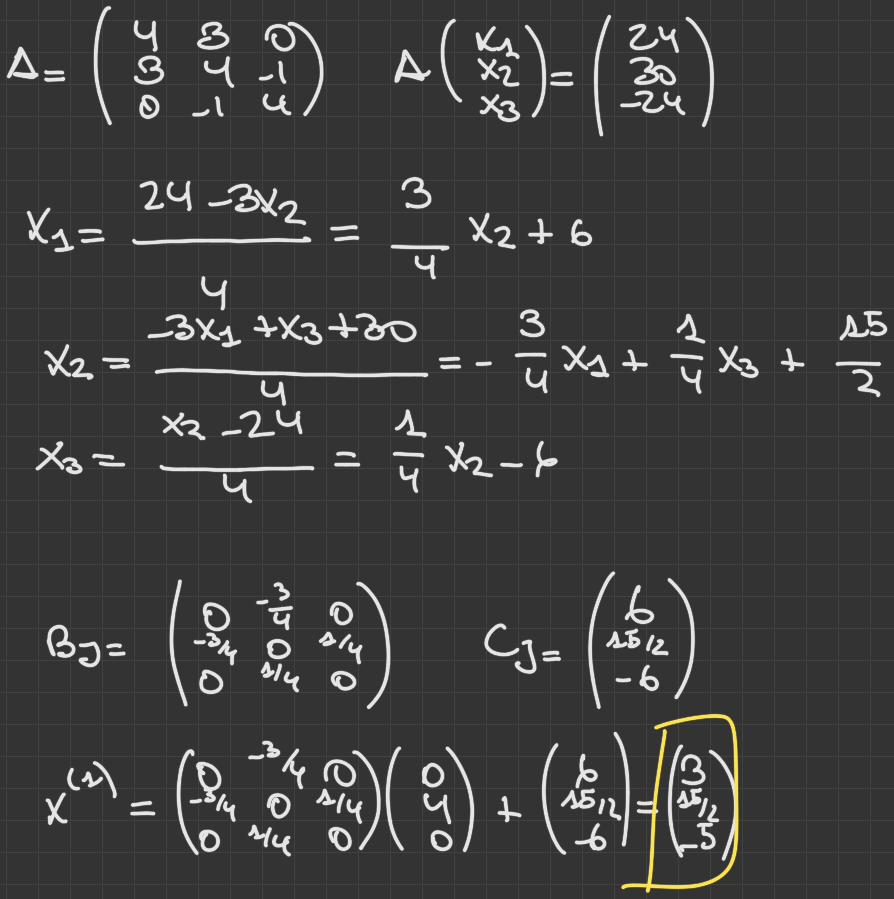 A = ( 4 3 0 ; 3 4 -1 ; 0 -1 4 )  A ( x1 ; x2 ; x3 ) = ( 24 ; 30 ; -24 )
x1 = (24 - 3x2)/4 = 3/4 x2 + 6
x2 = (-3x1 + x3 + 30)/4 = - 3/4 x1 + 1/4 x3 + 15/2
x3 = (x2 - 24)/4 = 1/4 x2 - 6
BJ = ( 0 -3/4 0 ; -3/4 0 1/4 ; 0 1/4 0 )  CJ = ( 6 ; 15/2 ; -6 )
x^(1) = ( 0 -3/4 0 ; -3/4 0 1/4 ; 0 1/4 0 ) ( 0 ; 4 ; 0 ) + ( 6 ; 15/2 ; -6 ) = ( 3 ; 15/2 ; -5 )